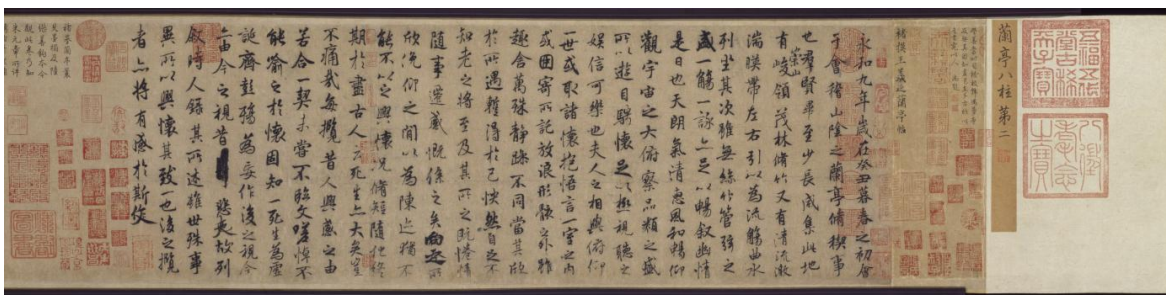 八徵耄念之寶
蘭亭八柱第二
褚模王羲之蘭亭帖
永和九年歲在癸丑暮春之初會
于會稽山陰之蘭亭脩稧事
也群賢畢至少長咸集此地
崇山
有峻領茂林脩竹又有清流激
湍暎帶左右引以為流觴曲水
列坐其次雖無絲竹管弦之
盛一觴一詠亦足以暢敘幽情
是日也天朗氣清惠風和暢仰
觀宇宙之大俯察品類之盛
所以遊目騁懷足以極視聽之
娛信可樂也夫人之相與俯仰
一世或取諸懷抱悟言一室之內
或因寄所託放浪形骸之外雖
趣舍萬殊靜躁不同當其欣
於所遇暫得於己快然自足不
知老之將至及其所之既惓情
隨事遷感慨係之矣向之所
欣俛仰之間以為陳迹猶不
能不以之興懷況脩短隨化終
期於盡古人云死生亦大矣豈
不痛哉每攬昔人興感之由
若合一契未嘗不臨文嗟悼不
能喻之於懷固知一死生為虛
誕齊彭殤為妄作後之視今
亦由今之視昔悲夫故列
敘時人錄其所述雖世殊事
異所以興懷其致一也後之攬
者亦將有感於斯文